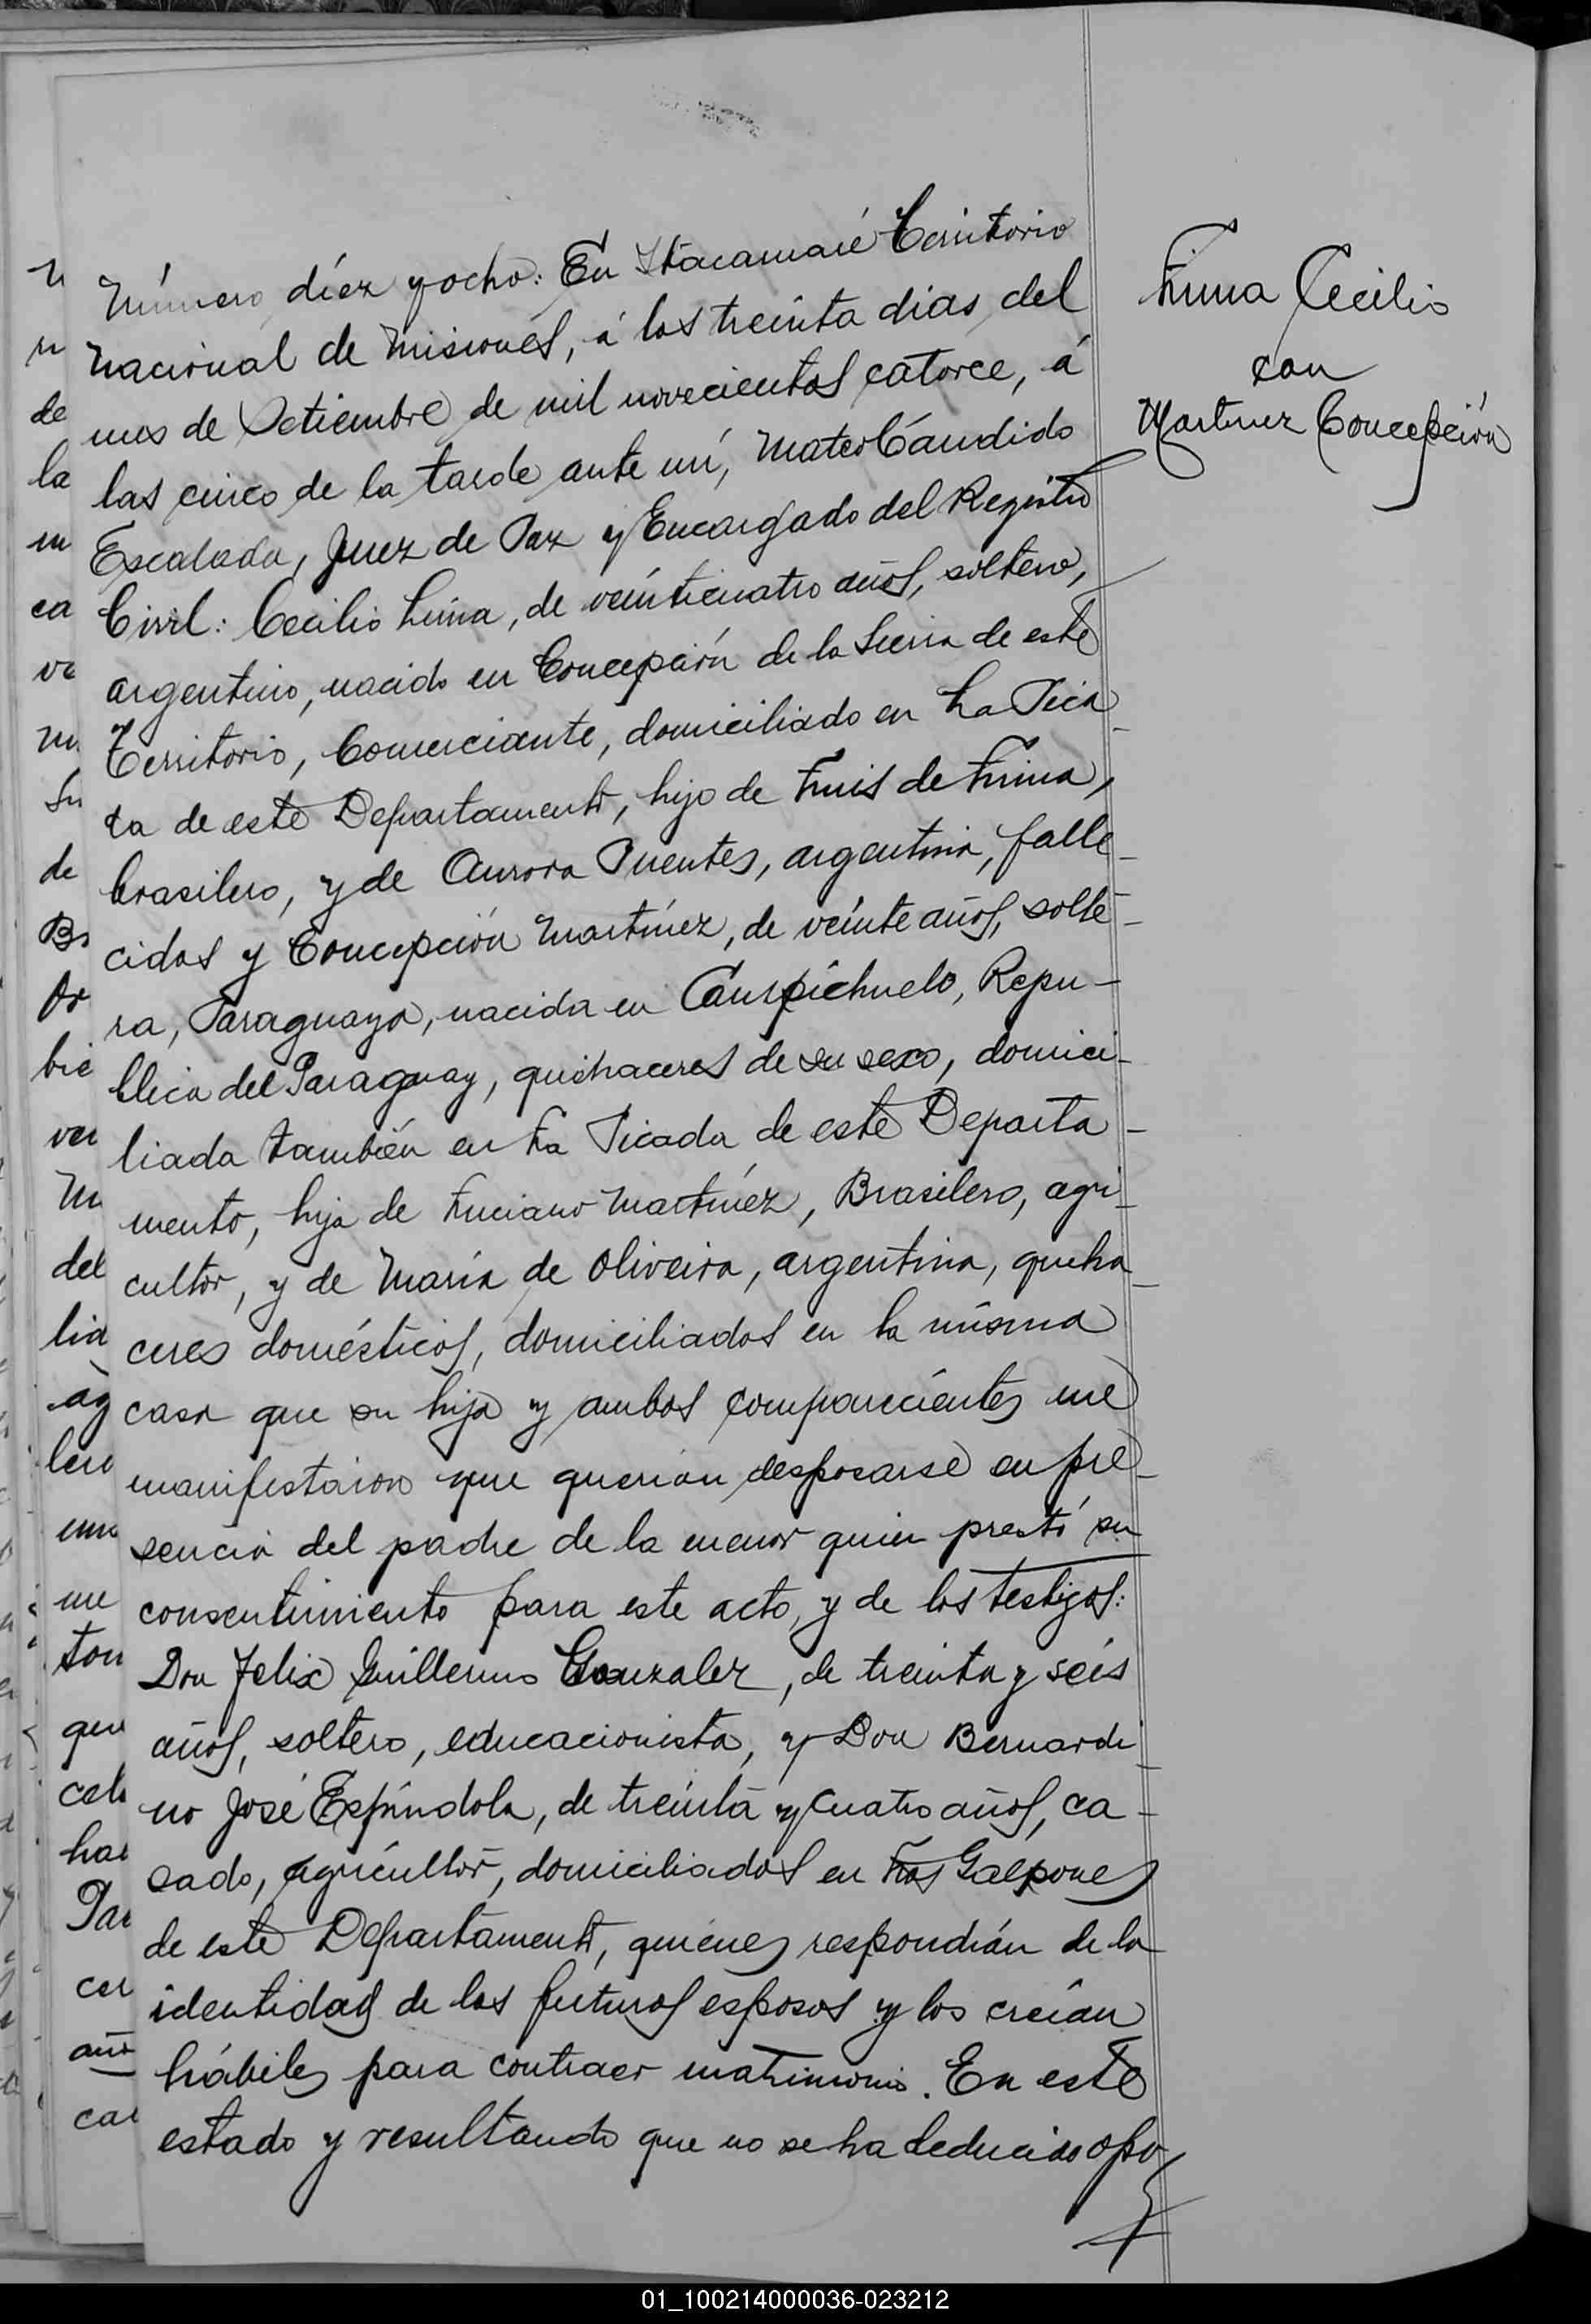 Número díez y ocho: En Itacaruaré Territorio
Nacional de Misiones, á los treinta dias del
mes de Setiembre de mil novecientos catorce, á
las cinco de la tarde ante mí, Mateo Cándido
Escalada, Juez de Paz y Encargado del Registro
Civil: Cecilio Lima, de veinticuatro años, soltero,
argentino, nacido en Concepción de la Sierra de este
Territorio, Comerciante, domiciliado en La Pica
da de este Departamento, hijo de Luis de Lima,
brasilero, y de Aurora Puentes, argentina, falle-
cidos y Concepción Martínez, de veinte años, solte-
ra, Paraguaya, nacida en Campichuelo, Repu-
blica del Paraguay, quehaceres de su sexo, domici-
liada también en La Picada de este Departa-
mento, hija de Luciano Martínez, Brasilero, agri-
cultor, y de María de Oliveira, argentina, queha-
ceres domésticos, domiciliados en la misma
casa que su hija y ambos comparecientes me
manifestaron que querían desposarse en pre-
sencia del padre de la menor quien prestó su
consentimiento para este acto, y de los testigos:
Don Felix Guillermo Gonzalez, de treinta y seis
años, soltero, educacionista, y Don Bernardi-
no José Espíndola, de treinta y cuatro años, ca-
sado, agricultor, domiciliados en Los Galpones
de este Departamento, quienes respondían de la
identidad de los futuros esposos y los creían
hábiles para contraer matrimonio. En este
estado y resultando que no se ha deducido opo
Lima Cecilio
con
Martinez Concepción
01_100214000036-023212